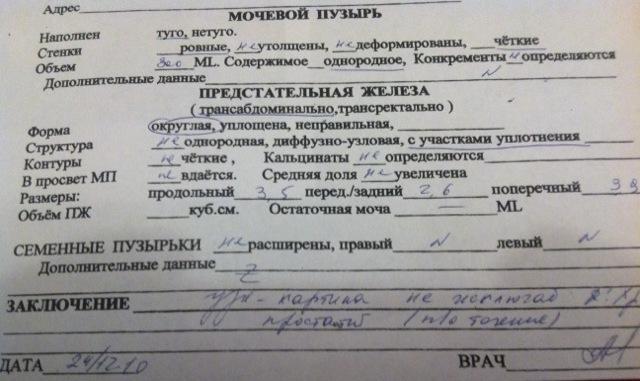 Адрес
МОЧЕВОЙ ПУЗЫРЬ
Наполнен туго, нетуго.
Стенки ровные, не утолщены, не деформированы, чёткие
Объем 300 ML. Содержимое однородное, Конкременты н определяются
Дополнительные данные N
ПРЕДСТАТЕЛЬНАЯ ЖЕЛЕЗА
( трансабдоминально,трансректально )
Форма округлая, уплощена, неправильная,
Структура не однородная, диффузно-узловая, с участками уплотнения
Контуры не чёткие , Кальцинаты не определяются
В просвет МП не вдаётся. Средняя доля не увеличена
Размеры: продольный 3,5 перед./задний 2,6 поперечный 3
Объём ПЖ куб.см. Остаточная моча — ML
СЕМЕННЫЕ ПУЗЫРЬКИ не расширены, правый N левый N
Дополнительные данные
ЗАКЛЮЧЕНИЕ узи - картина не исключает
простатит (п/о течение)
ДАТА 24/12.10 ВРАЧ